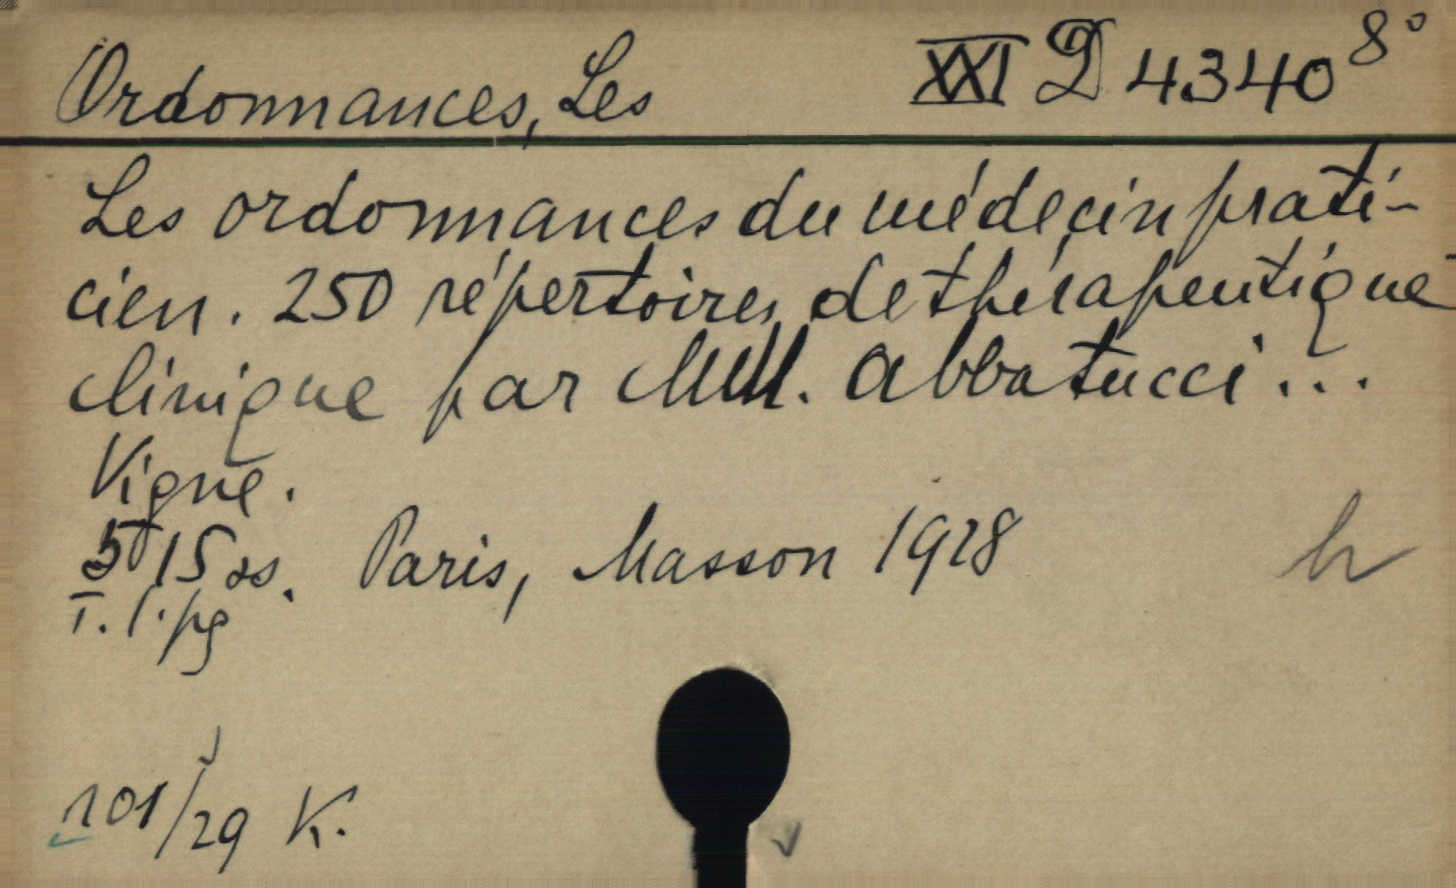 Ordonnances, Les XXI D 4340 8°
Les ordonnances du médecin prati-
cien. 250 répertoires de thérapeutique
clinique par MM. Abbatucci...
Vigne.
515 ss. Paris, Masson 1928
T. l. pg
h
101/29 K.